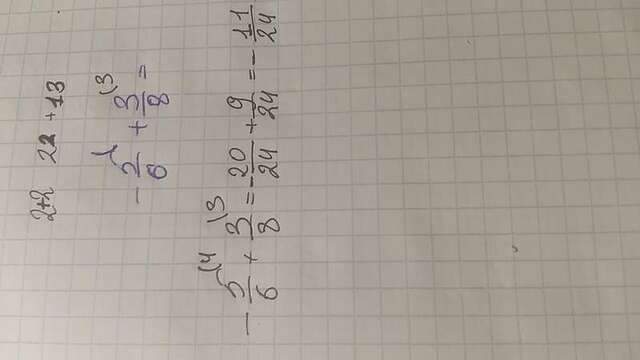 2+2 22 +13
- 5/6 + 3/8 (3 =
- 5/6 (4 + 3/8 (3 = - 20/24 + 9/24 = - 11/24